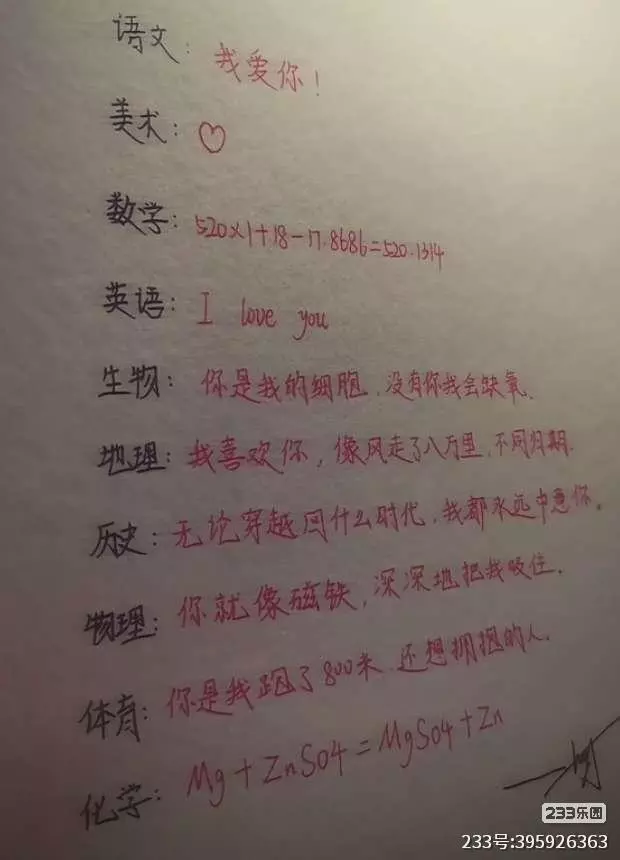 语文: 我爱你!
美术: ♡
数学: 520×1+18-17.8686=520.1314
英语: I love you
生物: 你是我的细胞,没有你我会缺氧.
地理: 我喜欢你,像风走了八万里,不问归期.
历史: 无论穿越回什么时代,我都永远中意你。
物理: 你就像磁铁,深深地把我吸住.
体育: 你是我跑了800米 还想拥抱的人.
化学: Mg+ZnSO4=MgSO4+Zn
233乐园
233号:395926363